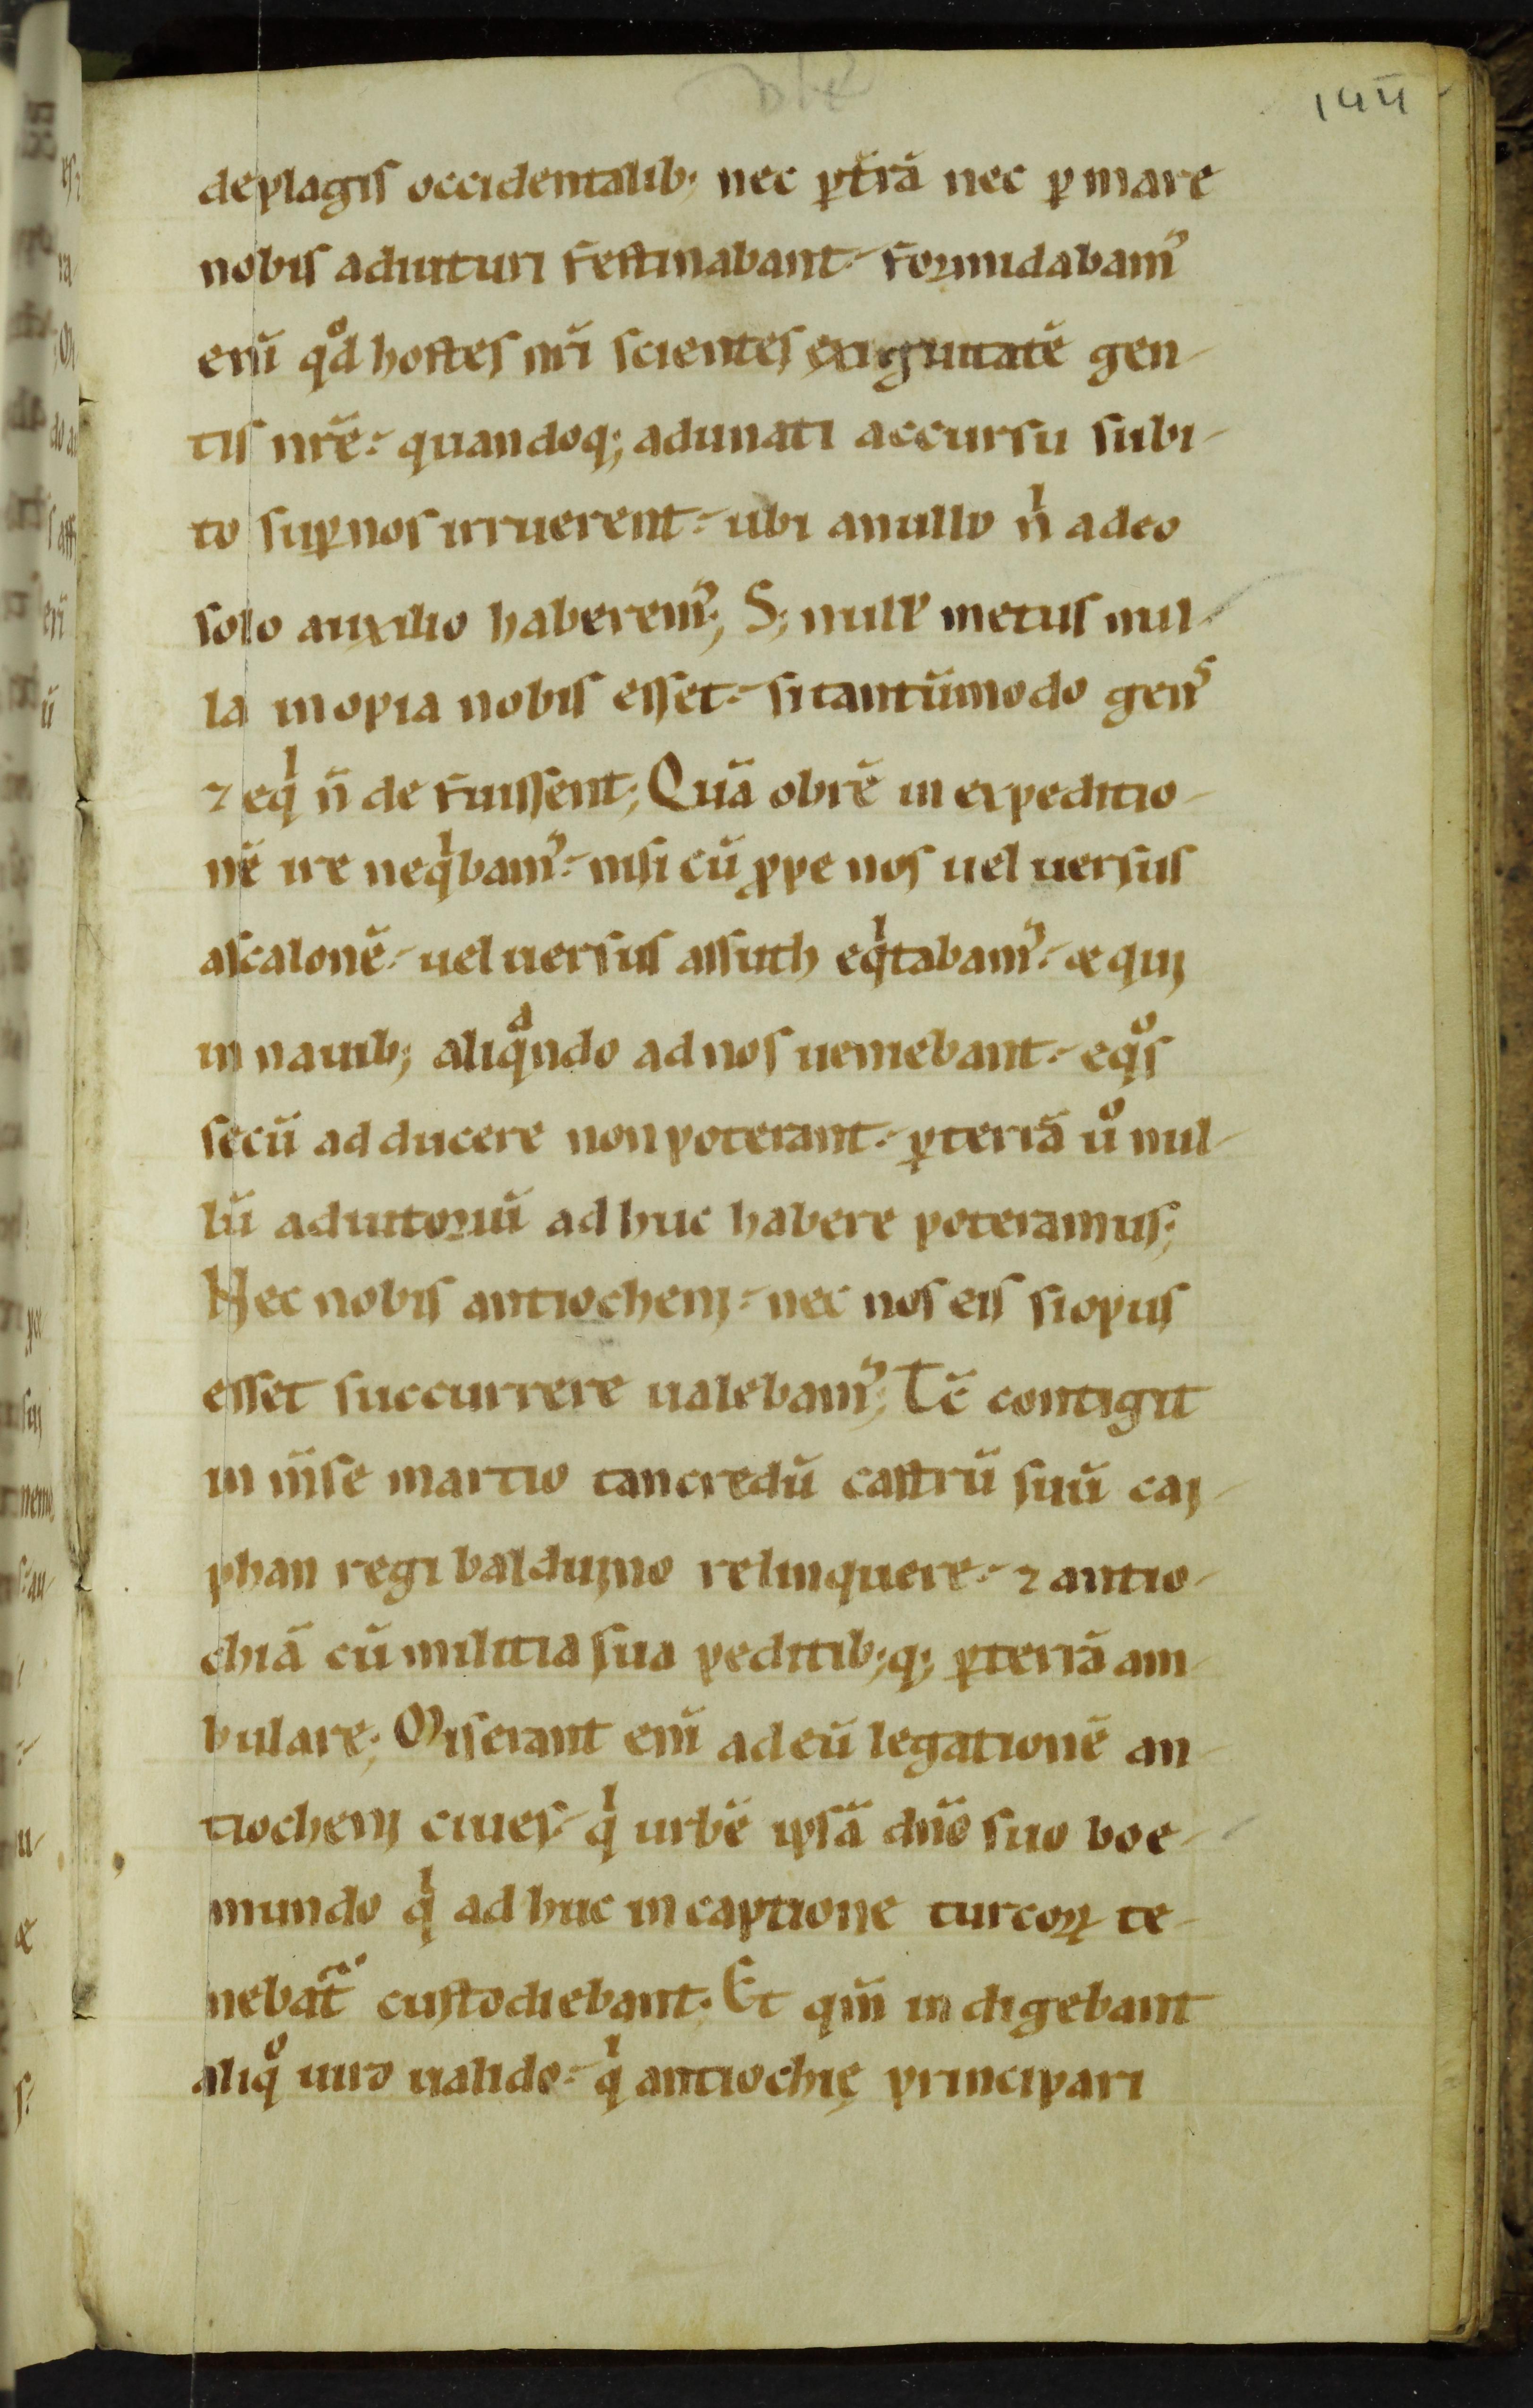 144
de plagis occidentalib; nec ꝑ t̄rā nec ꝑ mare
nobis adiuturi festinabant. formidabamꝰ
eni̅ qd̊ hostes nr̄i scientes exiguitatē gen-
tis nr̄ę. quandoq; adunati accursu subi-
to suꝑ nos irruerent. ubi a nullo nͥ a deo
solo auxilio haberemꝰ; S; nullꝰ metus nul-
la inopia nobis esset. si tantūmodo gens
⁊ eqͥ n̄ defuissent; Quā obrē in expeditio-
nē ire neqͥbamꝰ. nisi cū ꝓpe nos uel uersus
ascalonē. uel uersus assuth eqͥtabamꝰ. & qui
in nauib; aliqͣndo ad nos ueniebant. eqͦs
secū adducere non poterant. ꝑ terrā uͦ nul-
lū adiutoriū adhuc habere poteramus;
Nec nobis antiocheni. nec nos eis si opus
esset succurrere ualebamꝰ; Tc̄ contigit
in m̄se martio tancredū castrū suū cai-
phan regi balduino relinquere. ⁊ antio-
chiā cū militia sua peditib;q; ꝑ terrā am-
bulare; Miserant eni̅ ad eū legationē an-
tiocheni ciues. qͥ urbē ipsā dn̄o suo boe-
mundo qͥ adhuc in captione turcoꝝ te-
nebat᷑ custodiebant. Et qm̄ indigebant
aliqͦ uiro ualido. qͥ antiochię principari